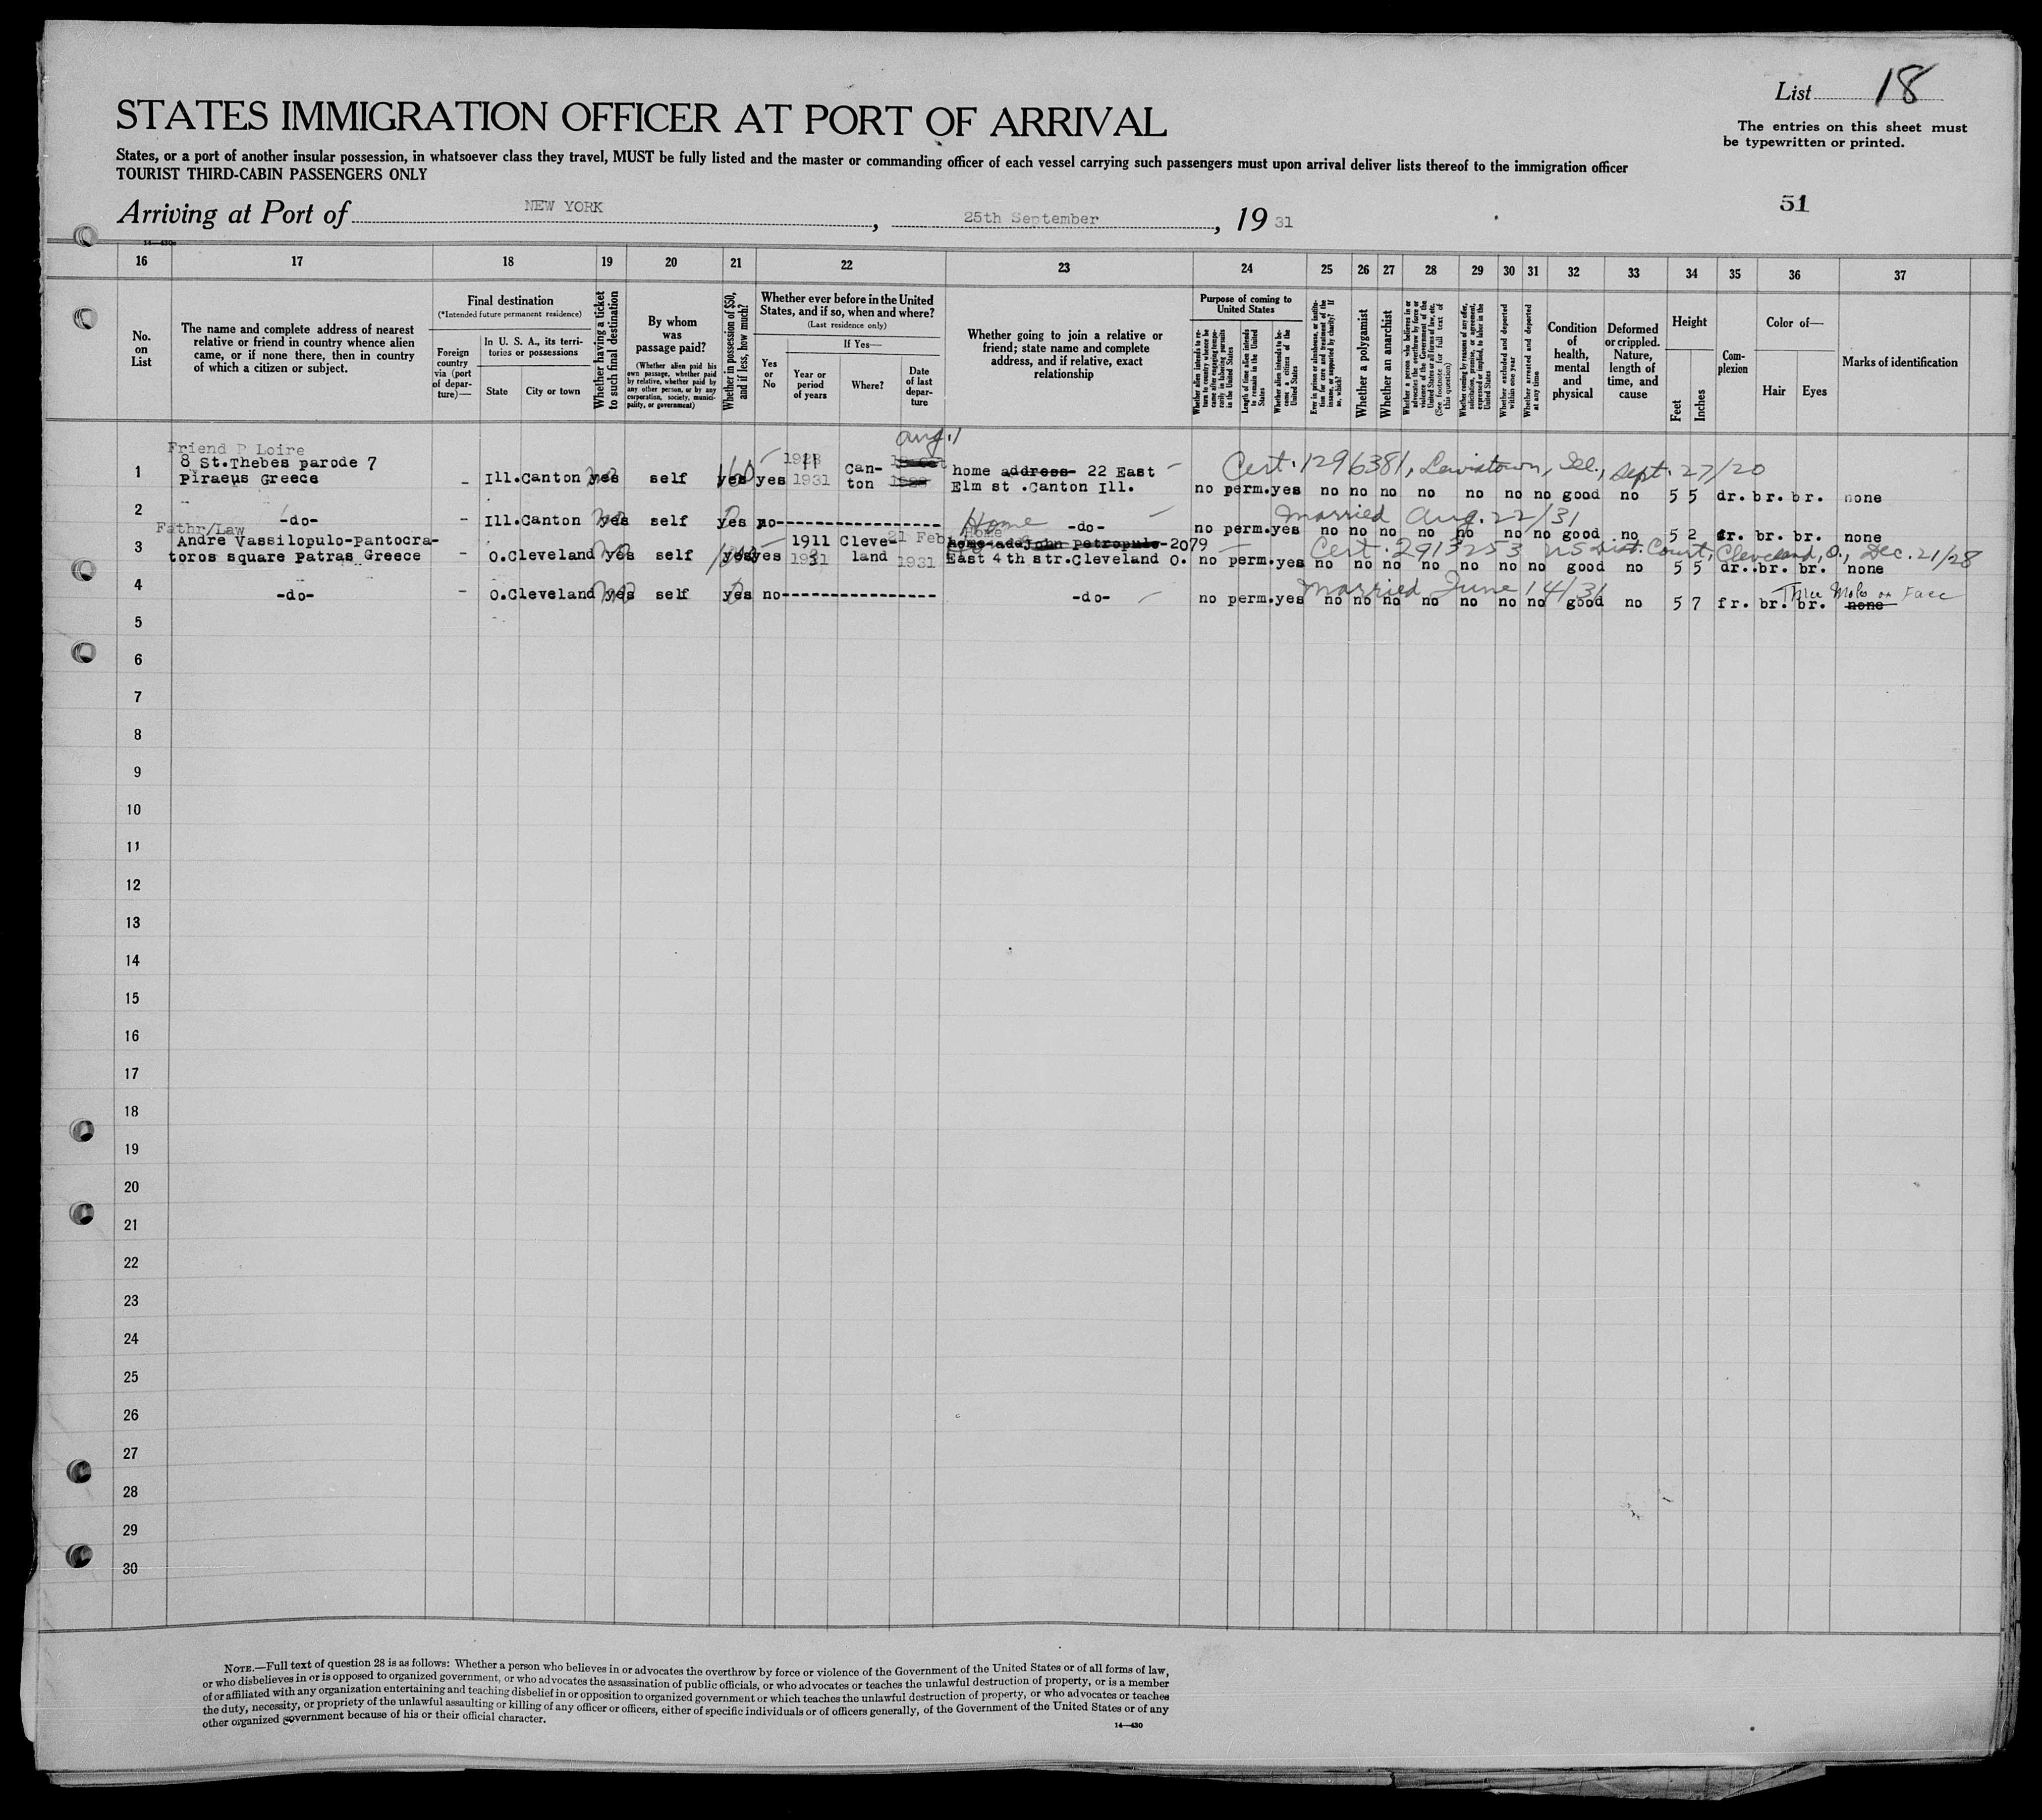 List 18
The entries on this sheet must
be typewritten or printed.
STATES IMMIGRATION OFFICER AT PORT OF ARRIVAL
States, or a port of another insular possession, in whatsoever class they travel, MUST be fully listed and the master or commanding officer of each vessel carrying such passengers must upon arrival deliver lists thereof to the immigration officer
TOURIST THIRD-CABIN PASSENGERS ONLY
51
Arriving at Port of NEW YORK, 25th September, 19 31
14—430a
16 17 18 19 20 21 22 23 24 25 26 27 28 29 30 31 32 33 34 35 36 37
No.
on
List
The name and complete address of nearest
relative or friend in country whence alien
came, or if none there, then in country
of which a citizen or subject.
Final destination
(*Intended future permanent residence)
Foreign
country
via (port
of depar-
ture)—
In U. S. A., its terri-
tories or possessions
State City or town
Whether having a ticket
to such final destination
By whom
was
passage paid?
(Whether alien paid his
own passage, whether paid
by relative, whether paid by
any other person, or by any
corporation, society, munici-
pality, or government)
Whether in possession of $50,
and if less, how much?
Whether ever before in the United
States, and if so, when and where?
(Last residence only)
Yes
or
No
If Yes—
Year or
period
of years
Where?
Date
of last
depar-
ture
Whether going to join a relative or
friend; state name and complete
address, and if relative, exact
relationship
Purpose of coming to
United States
Whether alien intends to re-
turn to country whence he
came after engaging tempo-
rarily in laboring pursuits
in the United States
Length of time alien intends
to remain in the United
States
Whether alien intends to be-
come a citizen of the
United States
Ever in prison or almshouse, or institu-
tion for care and treatment of the
insane, or supported by charity? If
so, which?
Whether a polygamist
Whether an anarchist
Whether a person who believes in or
advocates the overthrow by force or
violence of the Government of the
United States or all forms of law, etc.
(See footnote for full text of
this question)
Whether coming by reasons of any offer,
solicitation, promise, or agreement,
expressed or implied, to labor in the
United States
Whether excluded and deported
within one year
Whether arrested and deported
at any time
Condition
of
health,
mental
and
physical
Deformed
or crippled.
Nature,
length of
time, and
cause
Height
Feet Inches
Com-
plexion
Color of—
Hair Eyes
Marks of identification
Friend P Loire Aug. 1
1 8 St.Thebes parode 7 1923 Can- home address- 22 East Cert. 1296381, Lewistown, Ill., Sept. 27/20
Piraeus Greece - Ill.Canton yes self yes 160 yes 1931 ton Elm st .Canton Ill. no perm.yes no no no no no no no good no 5 5 dr. br. br. none
2 -do- - Ill.Canton yes self yes no---------------- Home -do- Married Aug. 22/31
no perm.yes no no no no no no no good no 5 2 fr. br. br. none
Fathr/Law
3 Andre Vassilopulo-Pantocra- 1911 Cleve- 21 Feb Home
home add John Petropulo-2079 Cert. 2913253 US Dist. Court, Cleveland, O., Dec. 21/28
toros square Patras Greece - O.Cleveland yes self yes yes 1931 land 1931 East 4th str.Cleveland O. no perm.yes no no no no no no no good no 5 5 dr. br. br. none
Married June 14/31 Three Moles on Face
4 -do- - O.Cleveland yes self yes no---------------- -do- no perm.yes no no no no no no no good no 5 7 fr. br. br. none
5
6
7
8
9
10
11
12
13
14
15
16
17
18
19
20
21
22
23
24
25
26
27
28
29
30
NOTE.—Full text of question 28 is as follows: Whether a person who believes in or advocates the overthrow by force or violence of the Government of the United States or of all forms of law,
or who disbelieves in or is opposed to organized government, or who advocates the assassination of public officials, or who advocates or teaches the unlawful destruction of property, or is a member
of or affiliated with any organization entertaining and teaching disbelief in or opposition to organized government or which teaches the unlawful destruction of property, or who advocates or teaches
the duty, necessity, or propriety of the unlawful assaulting or killing of any officer or officers, either of specific individuals or of officers generally, of the Government of the United States or of any
other organized government because of his or their official character.
14—430